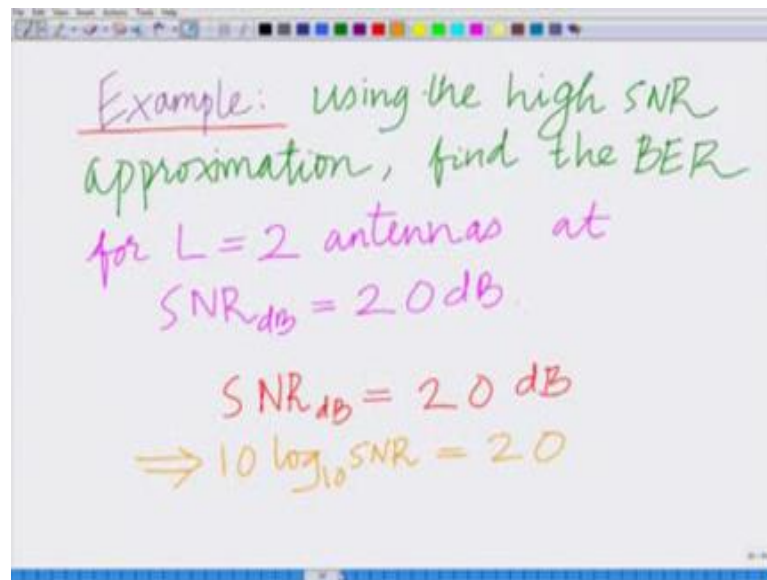 Example: using the high SNR
approximation, find the BER
for L = 2 antennas at
SNR_dB = 20 dB.
SNR_dB = 20 dB
⇒ 10 log_10 SNR = 20